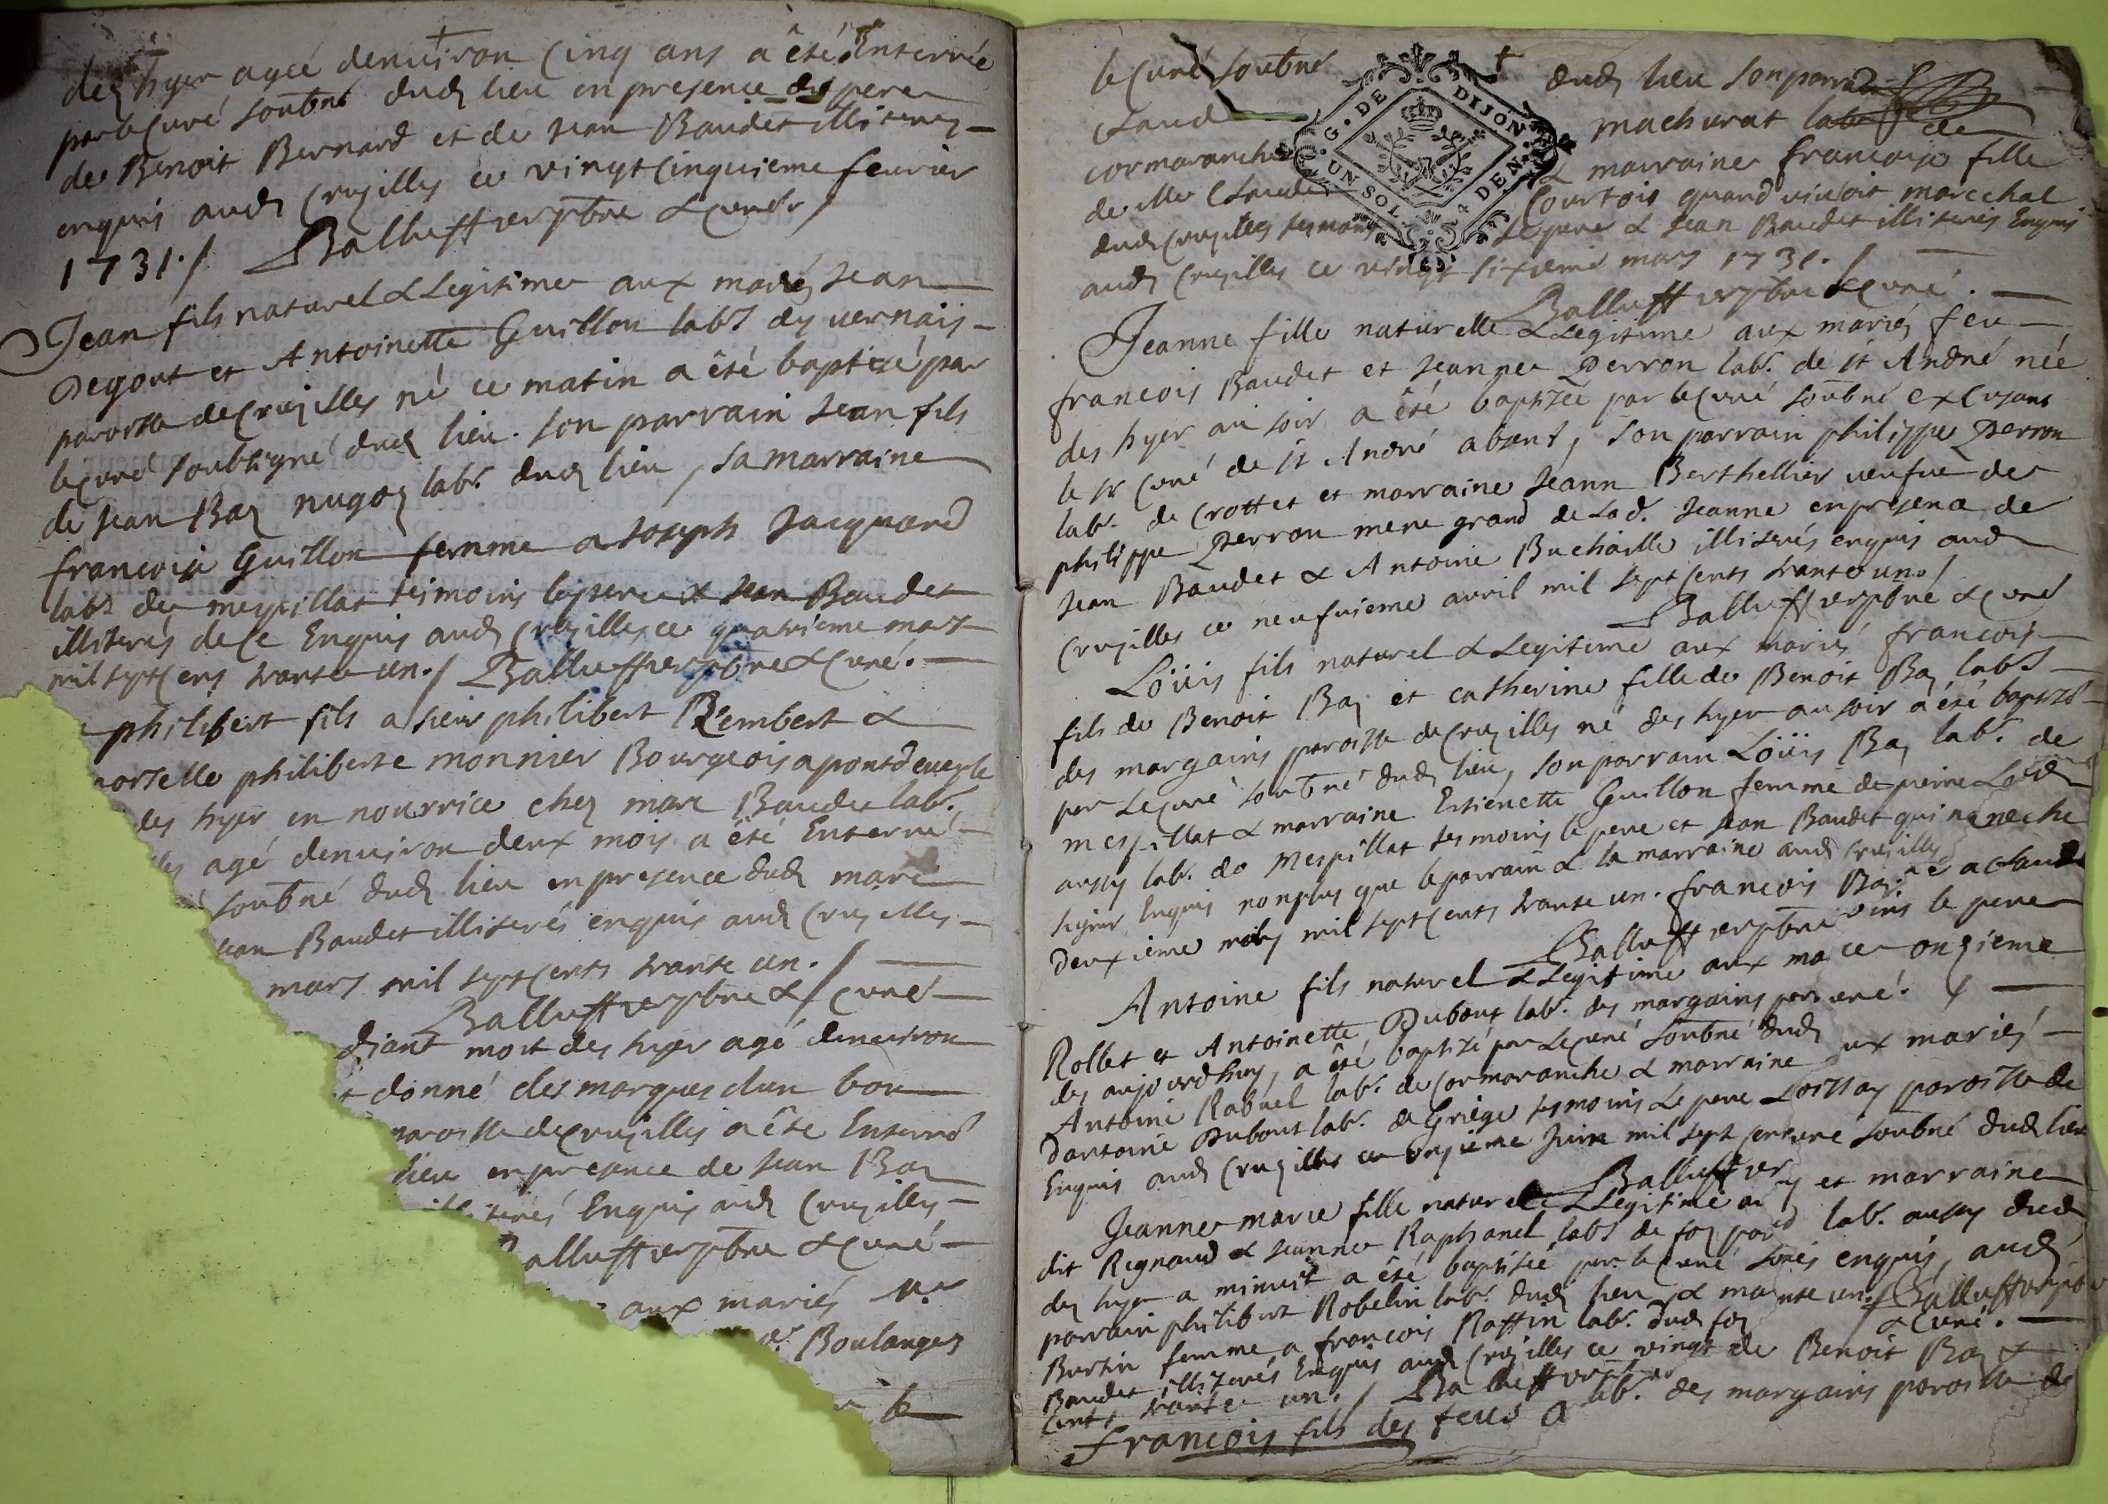 des hyer agée denuiron Cinq ans a été Enterrée
par le Curé soubné dud lieu en presence du pere
de Benoit Bernard et de Jean Baudet illiterés
enquis aud Cruzilles ce vingt Cinquieme feurier
1731./ Balluffier ptre & Curé /
Jean fils naturel & Legitime aux mariés Jean
Degout et Antoinette Guillon lab. des vernais
paroisse de Cruzilles né ce matin a été baptizé par
le Curé soubsigné dud lieu. son parrain Jean fils
de Jean Bay lab. dud lieu, sa marraine
francoise Guillon femme a Joseph Jacquand
lab. de mespillat tesmoins le pere & Jean Baudet
illiterés de ce Enquis aud Cruzilles ce quatrieme mars
mil sept Cens trante un./ Balluffier ptre & Curé.
philibert fils a sieur philibert Rembert &
philiberte monnier Bourgeois a pontdeueyle
des hyer en nourrice chez marc Baudet lab.
agé denuiron deux mois a été Enterré
soubné dud lieu en presence dud marc
Baudet illiterés enquis aud Cruzilles
mars mil sept Cents trante un./
Balluffier ptre & Curé
diant mort des hyer agé denuiron
donné des marques dun bon
paroisse de Cruzilles a été Enterré
lieu en preance de Jean Bay
Enquis aud Cruzilles
alluffier ptre & Curé
aux mariés
Boulanger
le
le Curé soubné dud lieu son parrain
Claude machurat lab. de
cormaranche & marraine francoise fille
de Claude Courtois quand viuoit marechal
dud Cruzilles tesmoins Le pere & Jean Baudet illiterés Enquis
G. DE DIJON
UN SOL 4 DEN
aud Cruzilles ce vingt sixieme mars 1731./
Balluffier ptre & Curé.
Jeanne fille naturelle & Legitime aux mariés feu
francois Baudet et Jeanne Perron lab. de st André née
des hyer au soir a été baptizée par le Curé soubné excusant
le sr Curé de st André absent, son parrain philippe Perron
lab. de Crottet et marraine Jeann Berthellier veufue de
philippe Perron mere grand de Lad. Jeanne en presence de
Jean Baudet & Antoine Buchaille illiterés enquis aud
Cruzilles ce neufuieme auril mil sept Cents trante un./
Balluffier ptre & Curé
Loüis fils naturel & Legitime aux mariés francois
fils de Benoit Bay et catherine fille de Benoit Bay lab.
des margains paroisse de Cruzilles né des hyer au soir a été baptizé
par Le Curé soubné dud lieu, son parrain Loüis Bay lab. de
mespillat & marraine Estienette Guillon femme de pierre
aussy lab. de Mespillat tesmoins le pere et Jean Baudet qui
Enquis non plus que le parrain & la marraine aud Cruzilles
deuxieme may mil sept Cents trante un. francois Bay
Balluffier ptre
Antoine fils naturel & Legitime aux ma ce onzieme
Rollet et Antoinette Dubout lab. des margains
des aujourdhuy, a été baptizé par Le Curé soubné dud
Antoine Rabuel lab. de Cormaranche & marraine ux mariés
dantoine Dubout lab. de Griege tesmoins Le pere paroisse de
Enquis aud Cruzilles ce onzieme Juin mil sept soubné dud lieu
Balluffier
Jeanne marie fille naturelle & Legitime au et marraine
dit Regnaud & Jeanne Raphanel lab. de lab. aussy dud
des hyer a minuit a été baptizée par le Curé enquis, aud
parrain philibert Robelin lab. dud lieu & ma Balluffier ptre
Burtin femme a francois Raffin lab. dud & Curé.
Baudet illiterés Enquis aud Cruzilles ce vingt de Benoit Bay &
Cents trante un./ Balluffier lab. des margains paroisse de
francois fils des feus